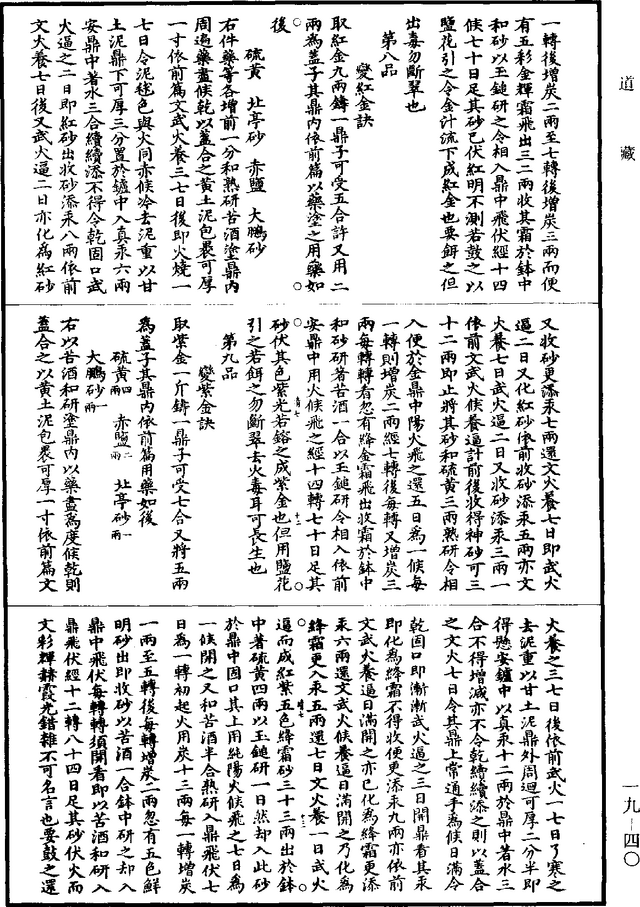 道藏
一轉後增炭二兩至七轉後增炭三兩而便
有五彩金輝霜飛出三二兩收其霜於鉢中
和砂以玉鎚研之令相入鼎中飛伏經十四
候七十日足其砂已伏紅明不測若鼓之以
鹽花引之令金汁流下成紅金也要餌之但
出毒勿斷翠也
第八品
變紅金訣
取紅金九兩鑄一鼎子可受五合許又用二
兩為蓋子其鼎內依前篇以藥塗之用藥如
後
硫黃 北亭砂 赤鹽 大鵬砂
右件藥等各增前一分和熟研苦酒塗鼎內
周遍藥盡候乾以蓋合之黃土泥包裹可厚
一寸依前篇文武火養三七日後即火燒一
七日令泥毬色與火同亦候冷去泥重以甘
土泥鼎下可厚三分置於爐中入真汞六兩
安鼎中著水三合續續添不得令乾固口武
火逼之二日即紅砂出收砂添汞八兩依前
文火養七日後又武火逼二日亦化為紅砂
又收砂更添汞七兩還文火養七日即武火
逼二日又化紅砂依前收砂添汞五兩亦文
火養七日武火逼二日又收砂添汞三兩一
依前文武火候養逼計前後收得神砂可三
十二兩即止將其砂和硫黃三兩熟研令相
入便於金鼎中陽火飛之還五日為一候每
一轉則增炭二兩經七轉後每轉又增炭三
兩每轉轉看忽有絳金霜飛出收霜於鉢中
和砂研著苦酒一合以玉鎚研令相入依前
安鼎中用火候飛之經十四轉七十日足其
砂伏其色紫光若鎔之成紫金也但用鹽花
引之若餌之勿斷翠去火毒耳可長生也
第九品
變紫金訣
取紫金一斤鑄一鼎子可受七合又將五兩
為蓋子其鼎內依前篇用藥如後
硫黃四兩 赤鹽二兩 北亭砂一兩
大鵬砂一兩
右以苦酒和研塗鼎內以藥盡為度候乾則
蓋合之以黃土泥包裹可厚一寸依前篇文
火養之三七日後依前武火一七日了寒之
去泥重以甘土泥鼎外周迴可厚二分半即
得懸安鑪中以真汞十二兩於鼎中著水三
合不得增減亦不令乾續續添之則以蓋合
之文火七日令其鼎上常通手為候日滿令
乾固口即漸漸武火逼之三日開鼎看其汞
即化為絳霜不得收便更添汞九兩亦依前
文武火養逼日滿開之亦已化為絳霜更添
汞六兩還文武火候養逼日滿開之乃化為
絳霜更入汞五兩還七日文火養一日武火
逼而成紅紫五色絳霜砂三十三兩出於鉢
中著硫黃四兩以玉鎚研一日然却入此砂
於鼎中固口其上用純陽火候飛之七日為
一候開之又和苦酒半合熟研入鼎飛伏七
日為一轉初起火用炭十三兩每一轉增炭
一兩至五轉後每轉增炭二兩忽有五色鮮
明砂出即收砂以苦酒一合鉢中研之却入
鼎中飛伏每轉轉須開看即以苦酒和研入
鼎飛伏經十二轉八十四日足其砂伏火而
文彩輝赫霞光錯雜不可名言也要鼓之還
一九—四〇